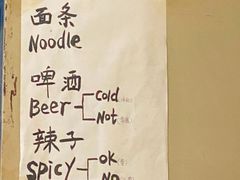 面条
Noodle
啤酒
Beer
Cold
Not
辣子
SPicy
ok
NO